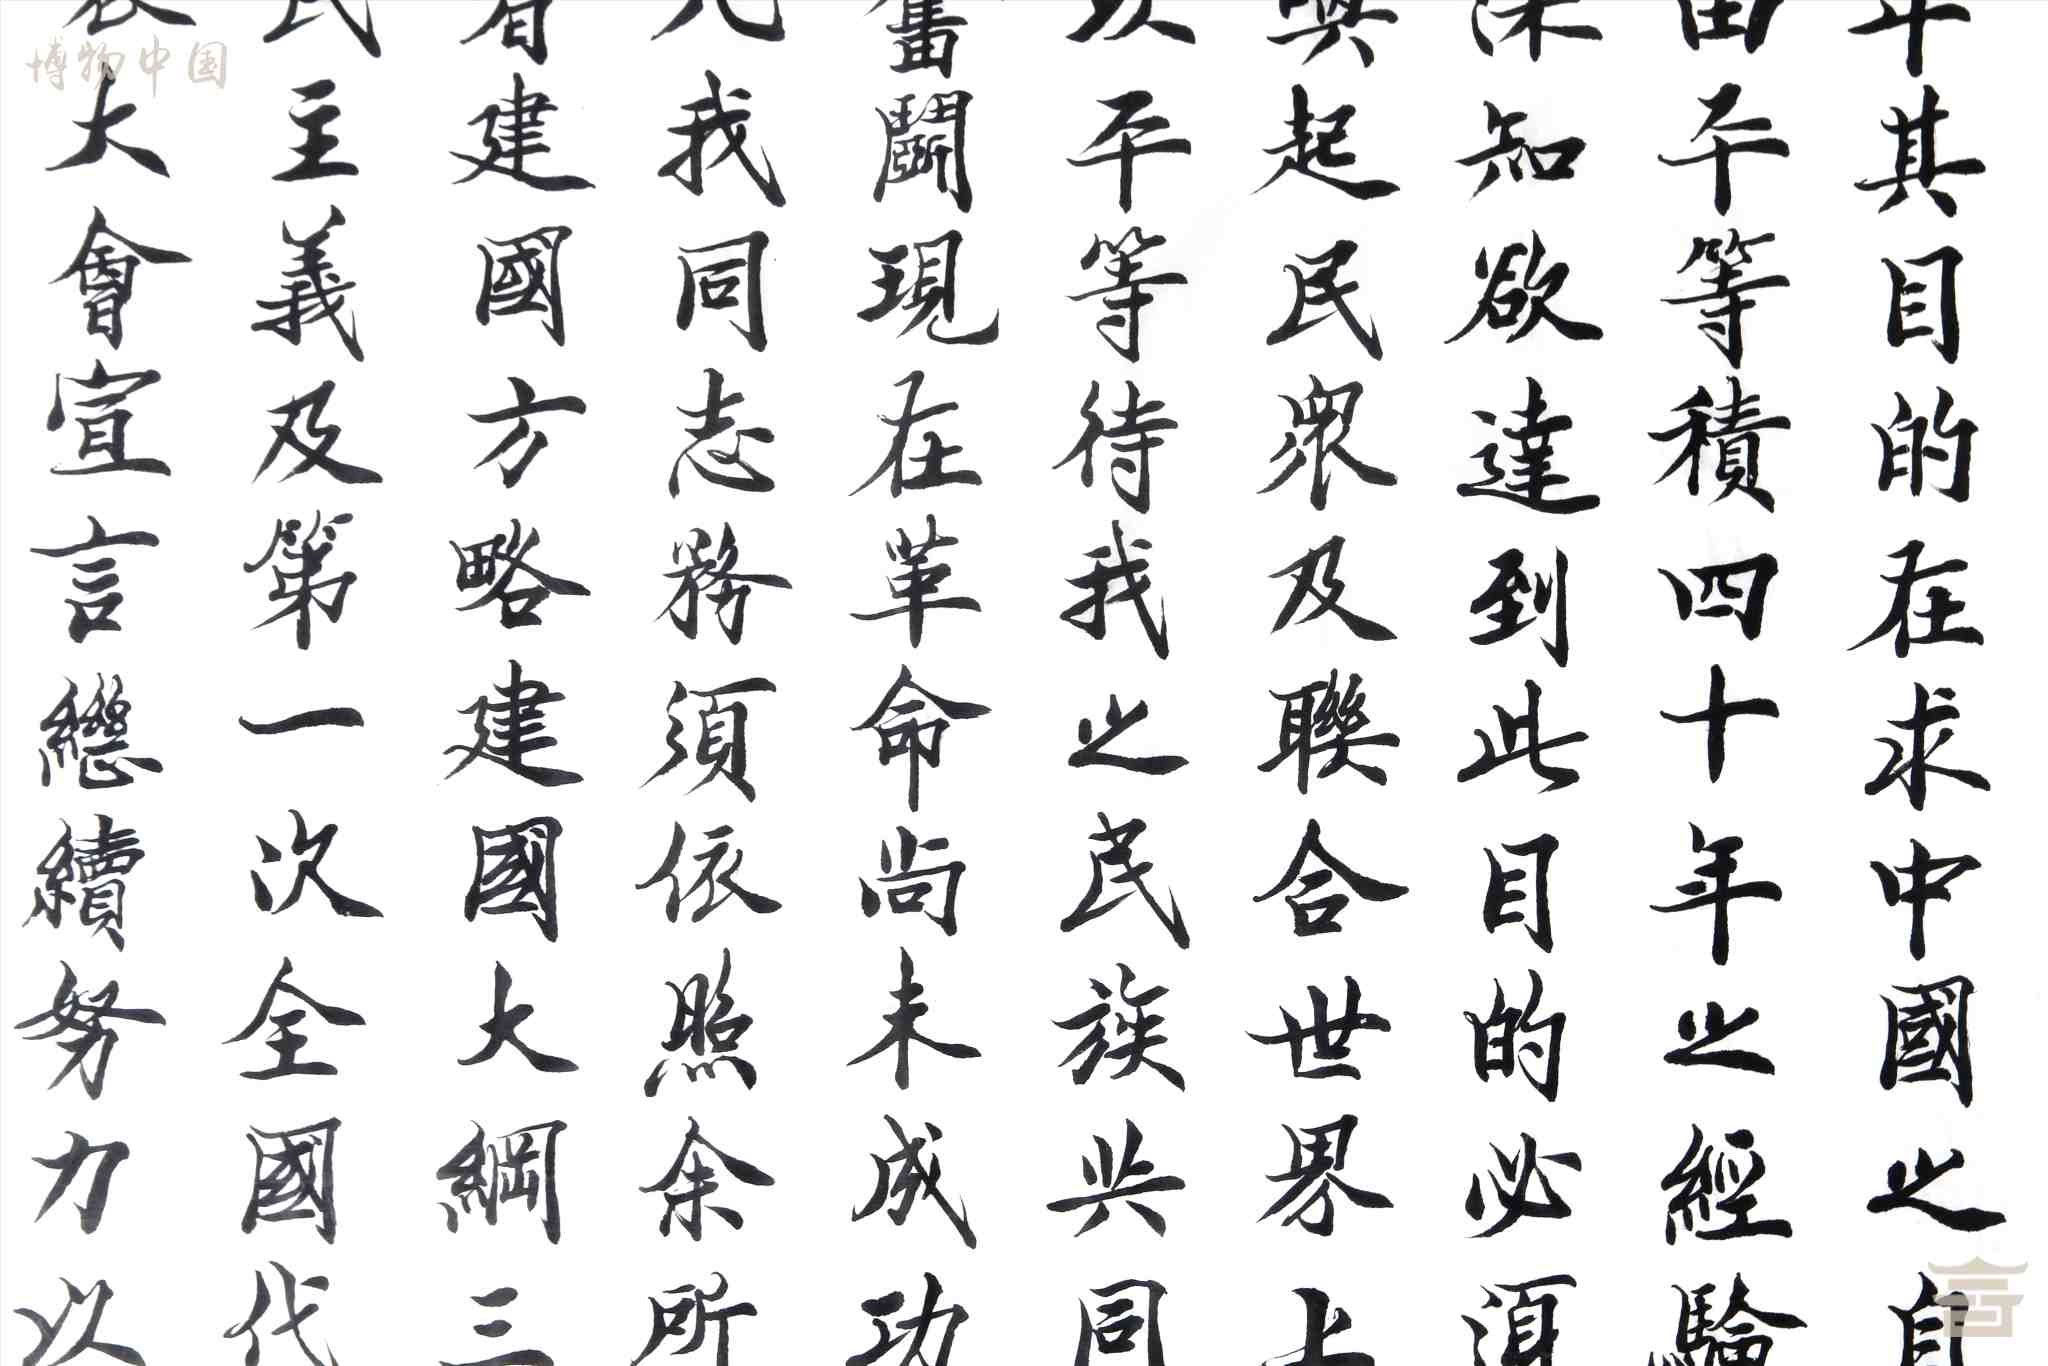 年其目的在求中國之自
由平等積四十年之經驗
深知欲達到此目的必須
喚起民衆及聯合世界上
以平等待我之民族共同
奮鬭現在革命尚未成功
凡我同志務須依照余所
著建國方略建國大綱三
民主義及第一次全國代
表大會宣言繼續努力以
博物中国